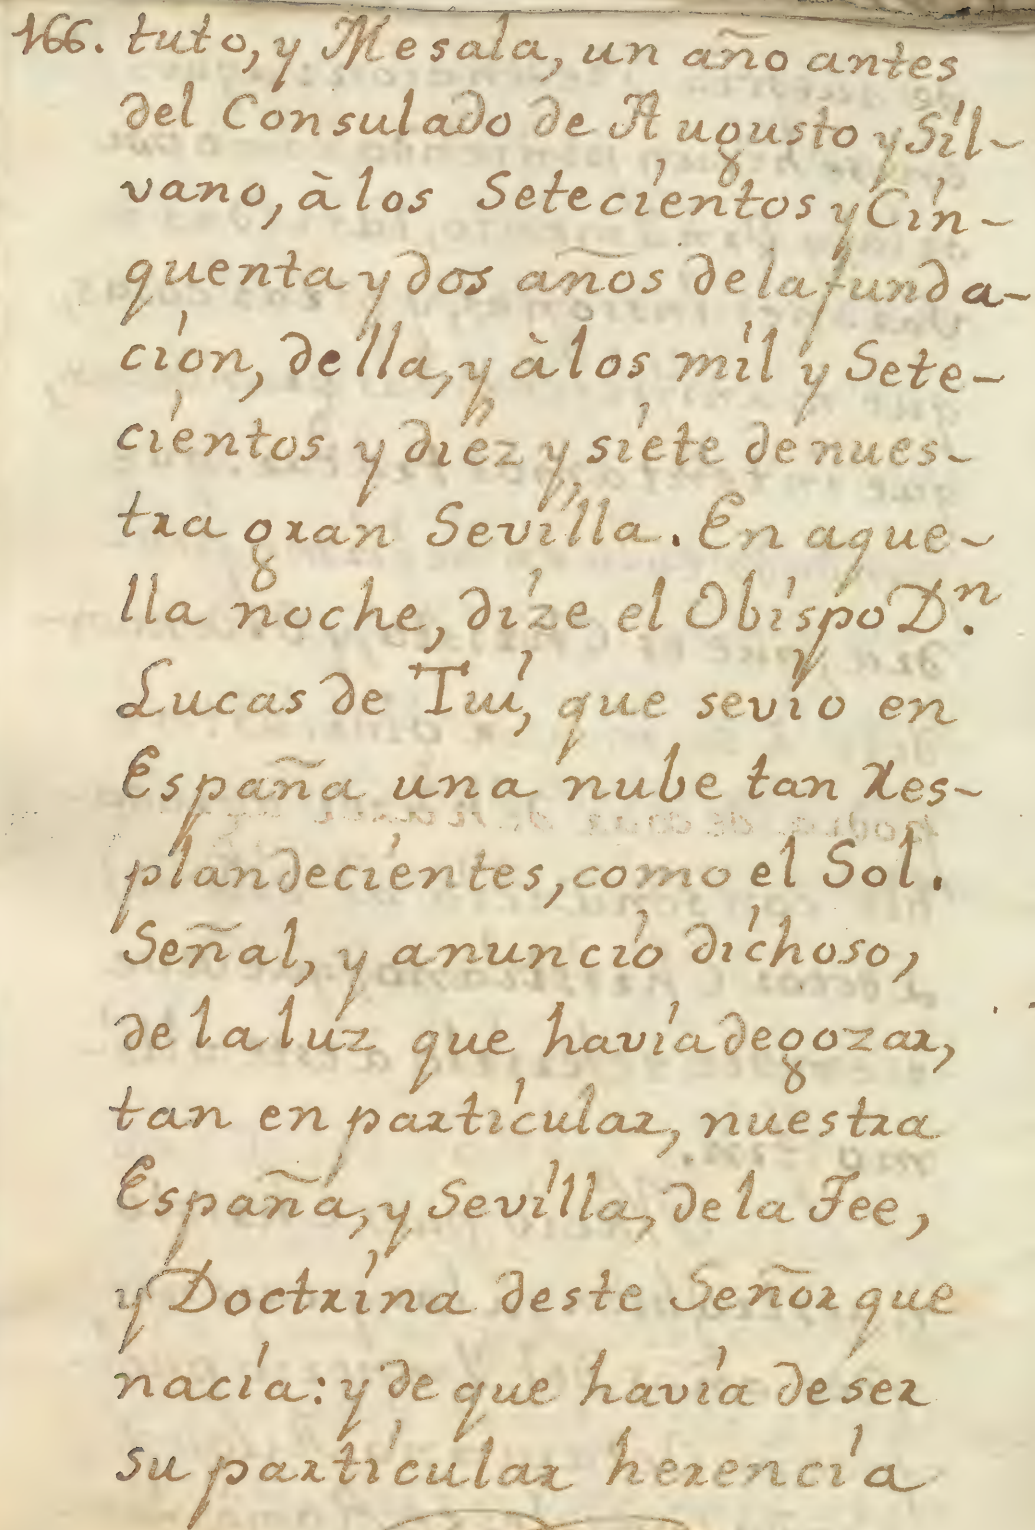 166. tuto, y Mesala, un año antes
del Consulado de Augusto y Sil~
vano, à los Setecientos y Cin~
quenta y dos años de la funda~
cion, della, y à los mil y Sete~
cientos y diez y siete de nues~
tra gran Sevilla. En aque~
lla noche, dize el Obispo D.ⁿ
Lucas de Tui, que se vio en
España una nube tan Res~
plandecientes, como el Sol.
Señal, y anuncio dichoso,
de la luz que havia de gozar,
tan en particular, nuestra
España, y Sevilla, de la Fee,
y Doctrina deste Señor que
nacia: y de que havia de ser
su particular herencia